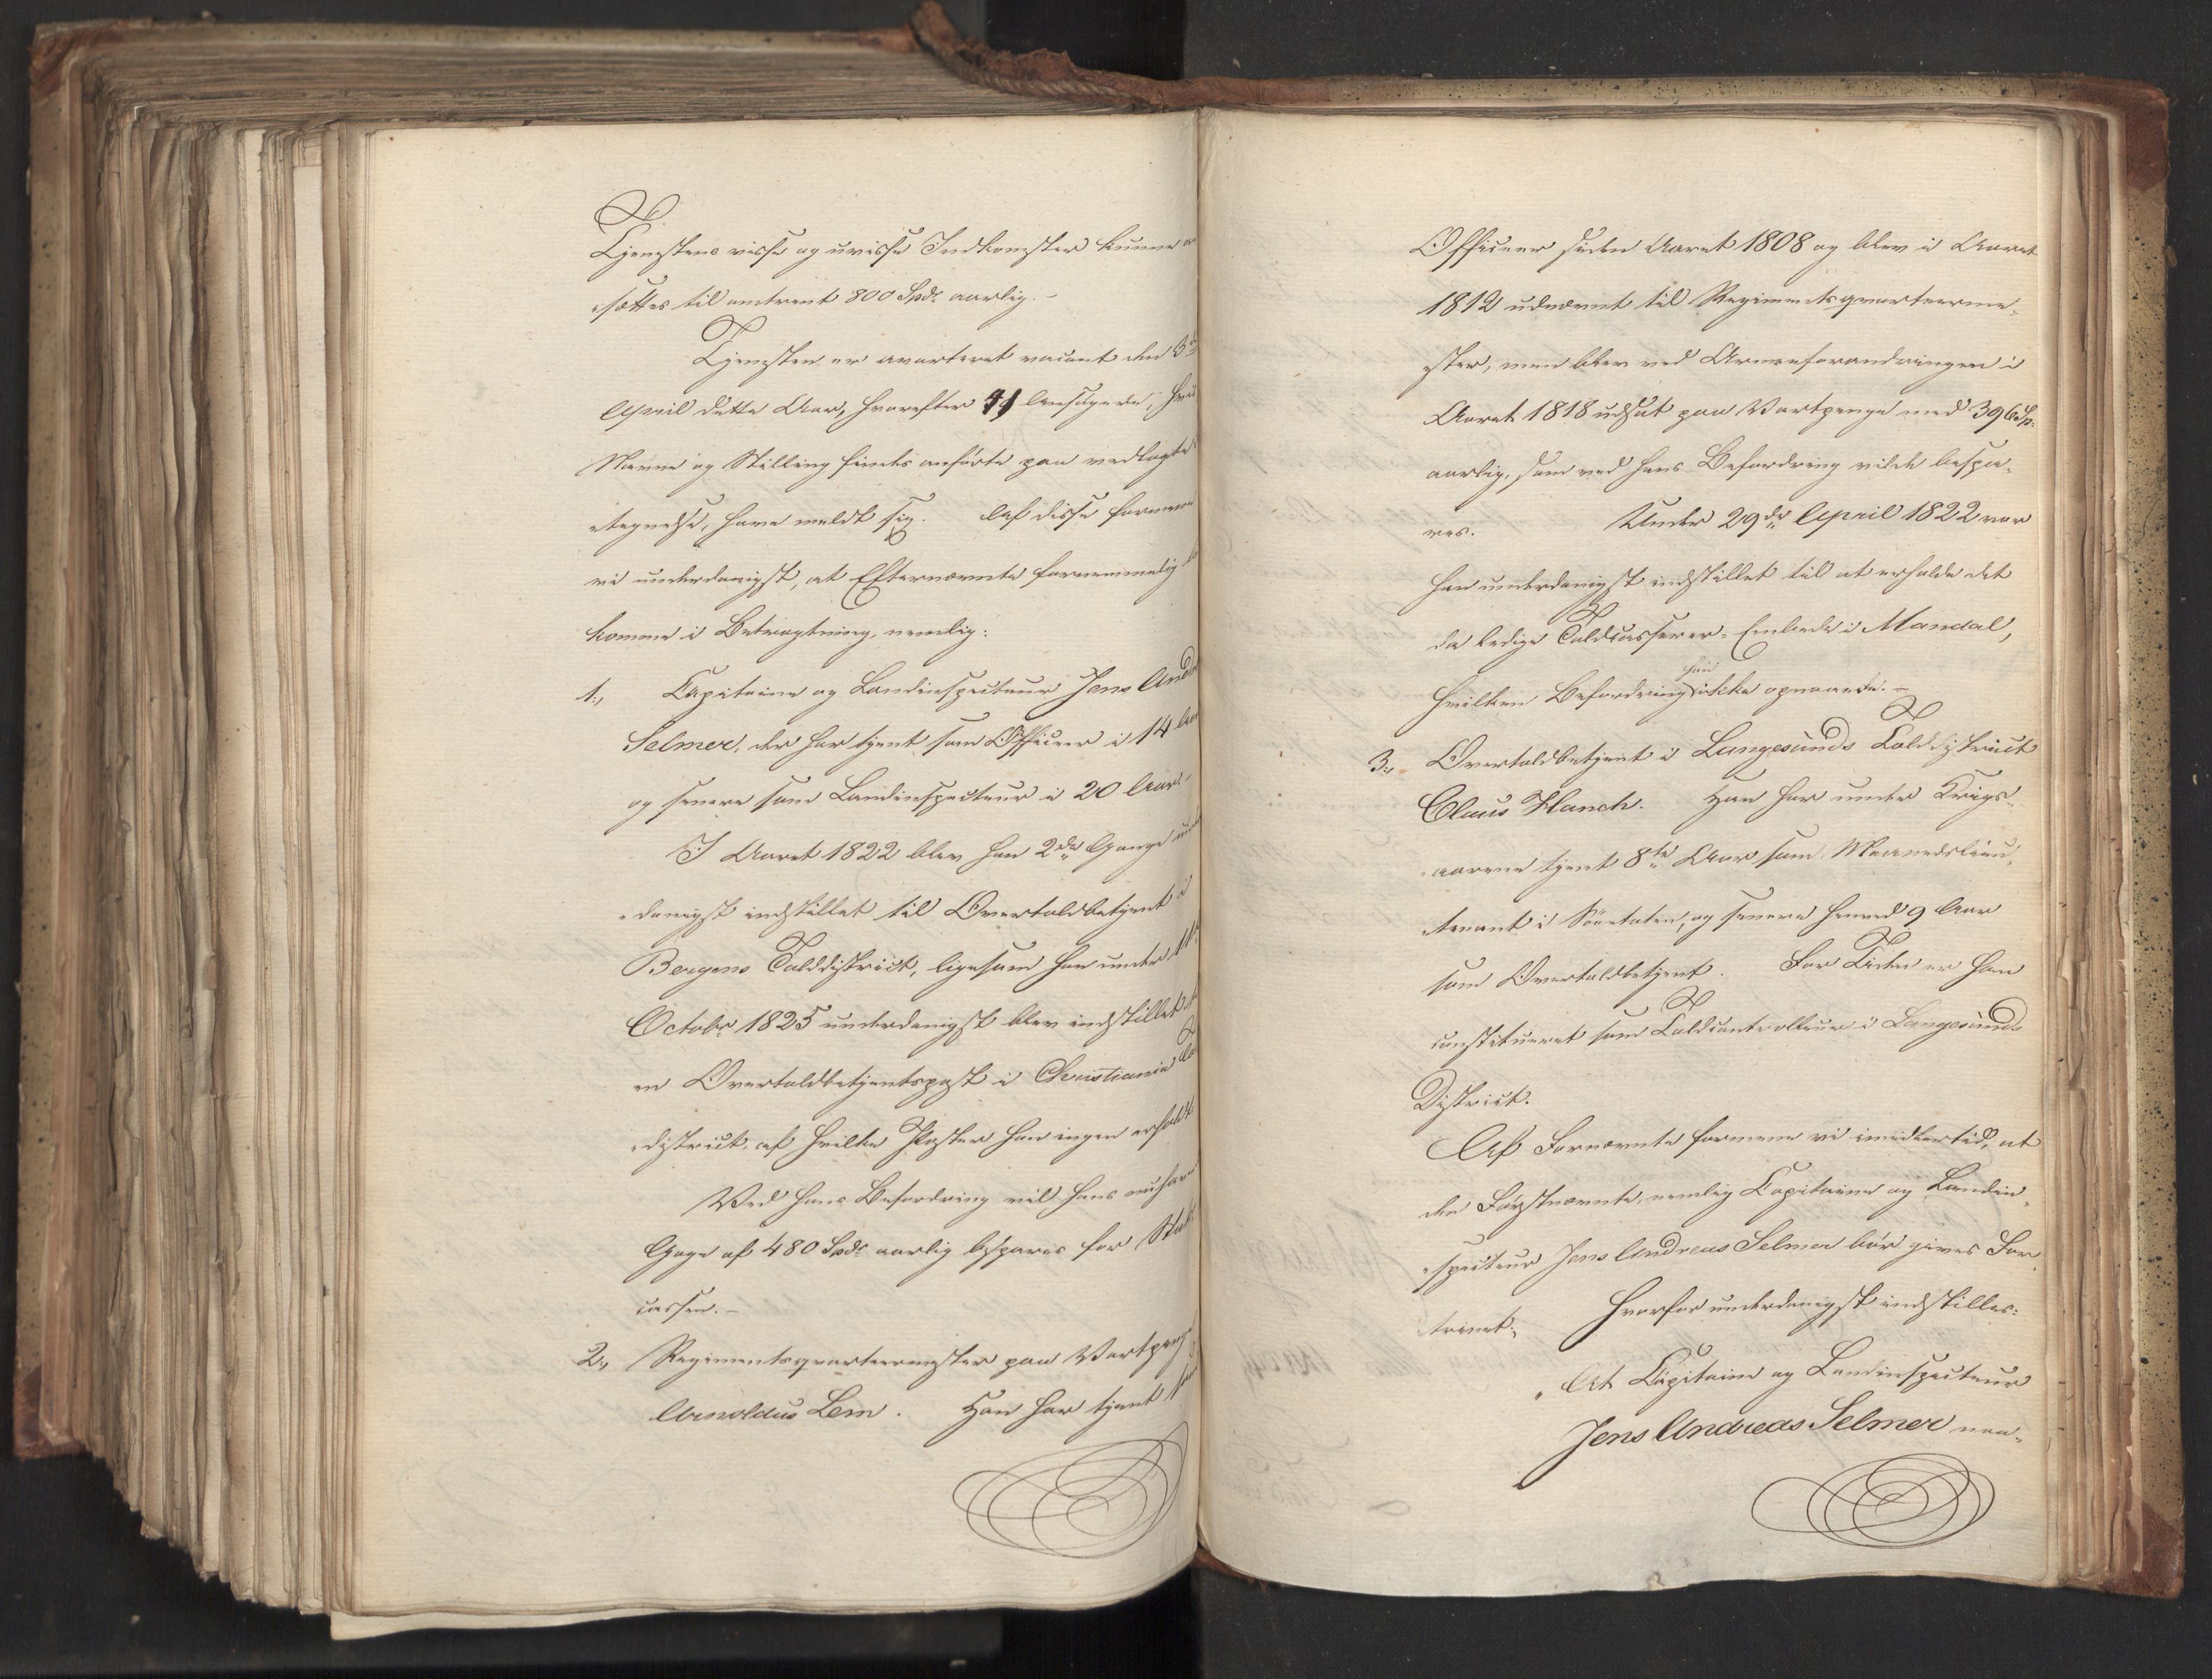 Tjenestens visse og uvisse Indkomster kunne
sættes til omtrent 800 Spd. aarlig. –
Tjenesten er averteret vacant den 3
April dette Aar, hvorefter 41 Ansøgere,
Navne og Stilling findes anførte paa vedlagte
tegnelse, have meldt sig. Af disse formene
vi underdanigst, at Efternævnte fornemmelig
komme i Betragtning, nemlig:
1., Capitaine og Landinspecteur Jens
Selmer, der har tjent som Officeer i 14
og senere som Landinspecteur i 20 Aar.
I Aaret 1822 blev han 2de Gange
danigst indstillet til Overtoldbetjent i
Bergens Tolddistrict, ligesom han under
Octobr 1825 underdanigst blev indstillet
en Overtoldbetjentspost i Christiania
district, af hvilke Poster han ingen erholdt
Ved hans Befordring vil hans
Gage af 480 Spd. aarlig bespares for
cassen. –
2., Regimentsqvarteermester paa
Arnoldus Lem. Han har tjent
Officeer siden Aaret 1808 og blev i Aaret
1812 udnævnt til Regimentsqvarteerme-
ster, men blev ved Armeeforandringen i
Aaret 1818 udsat paa Vartpenge med 396 Sp.
aarlig, som ved hans Befordring vilde bespa-
res. Under 29de April 1822 var
han underdanigst indstillet til at erholde det
da ledige Toldcasserer-Embede i Mandal,
hvilken Befordring han ikke opnaaede. –
3., Overtoldbetjent i Langesunds Tolddistrict
Claus Hanch. Han har under Krigs-
aarene tjent 8te Aar som Maanedslieu-
tenant i Søetaten, og senere henved 9 Aar
som Overtoldbetjent. For Tiden er han
constitueret som Toldcontrolleur i Langesunds
District.
Af Fornævnte formene vi imidlertid, at
den Førstnævnte, nemlig Capitaine og Landin-
specteur Jens Andreas Selmer bør gives For-
trinet; hvorfor underdanigst indstilles:
„At Capitaine og Landinspecteur
Jens Andreas Selmer naa-